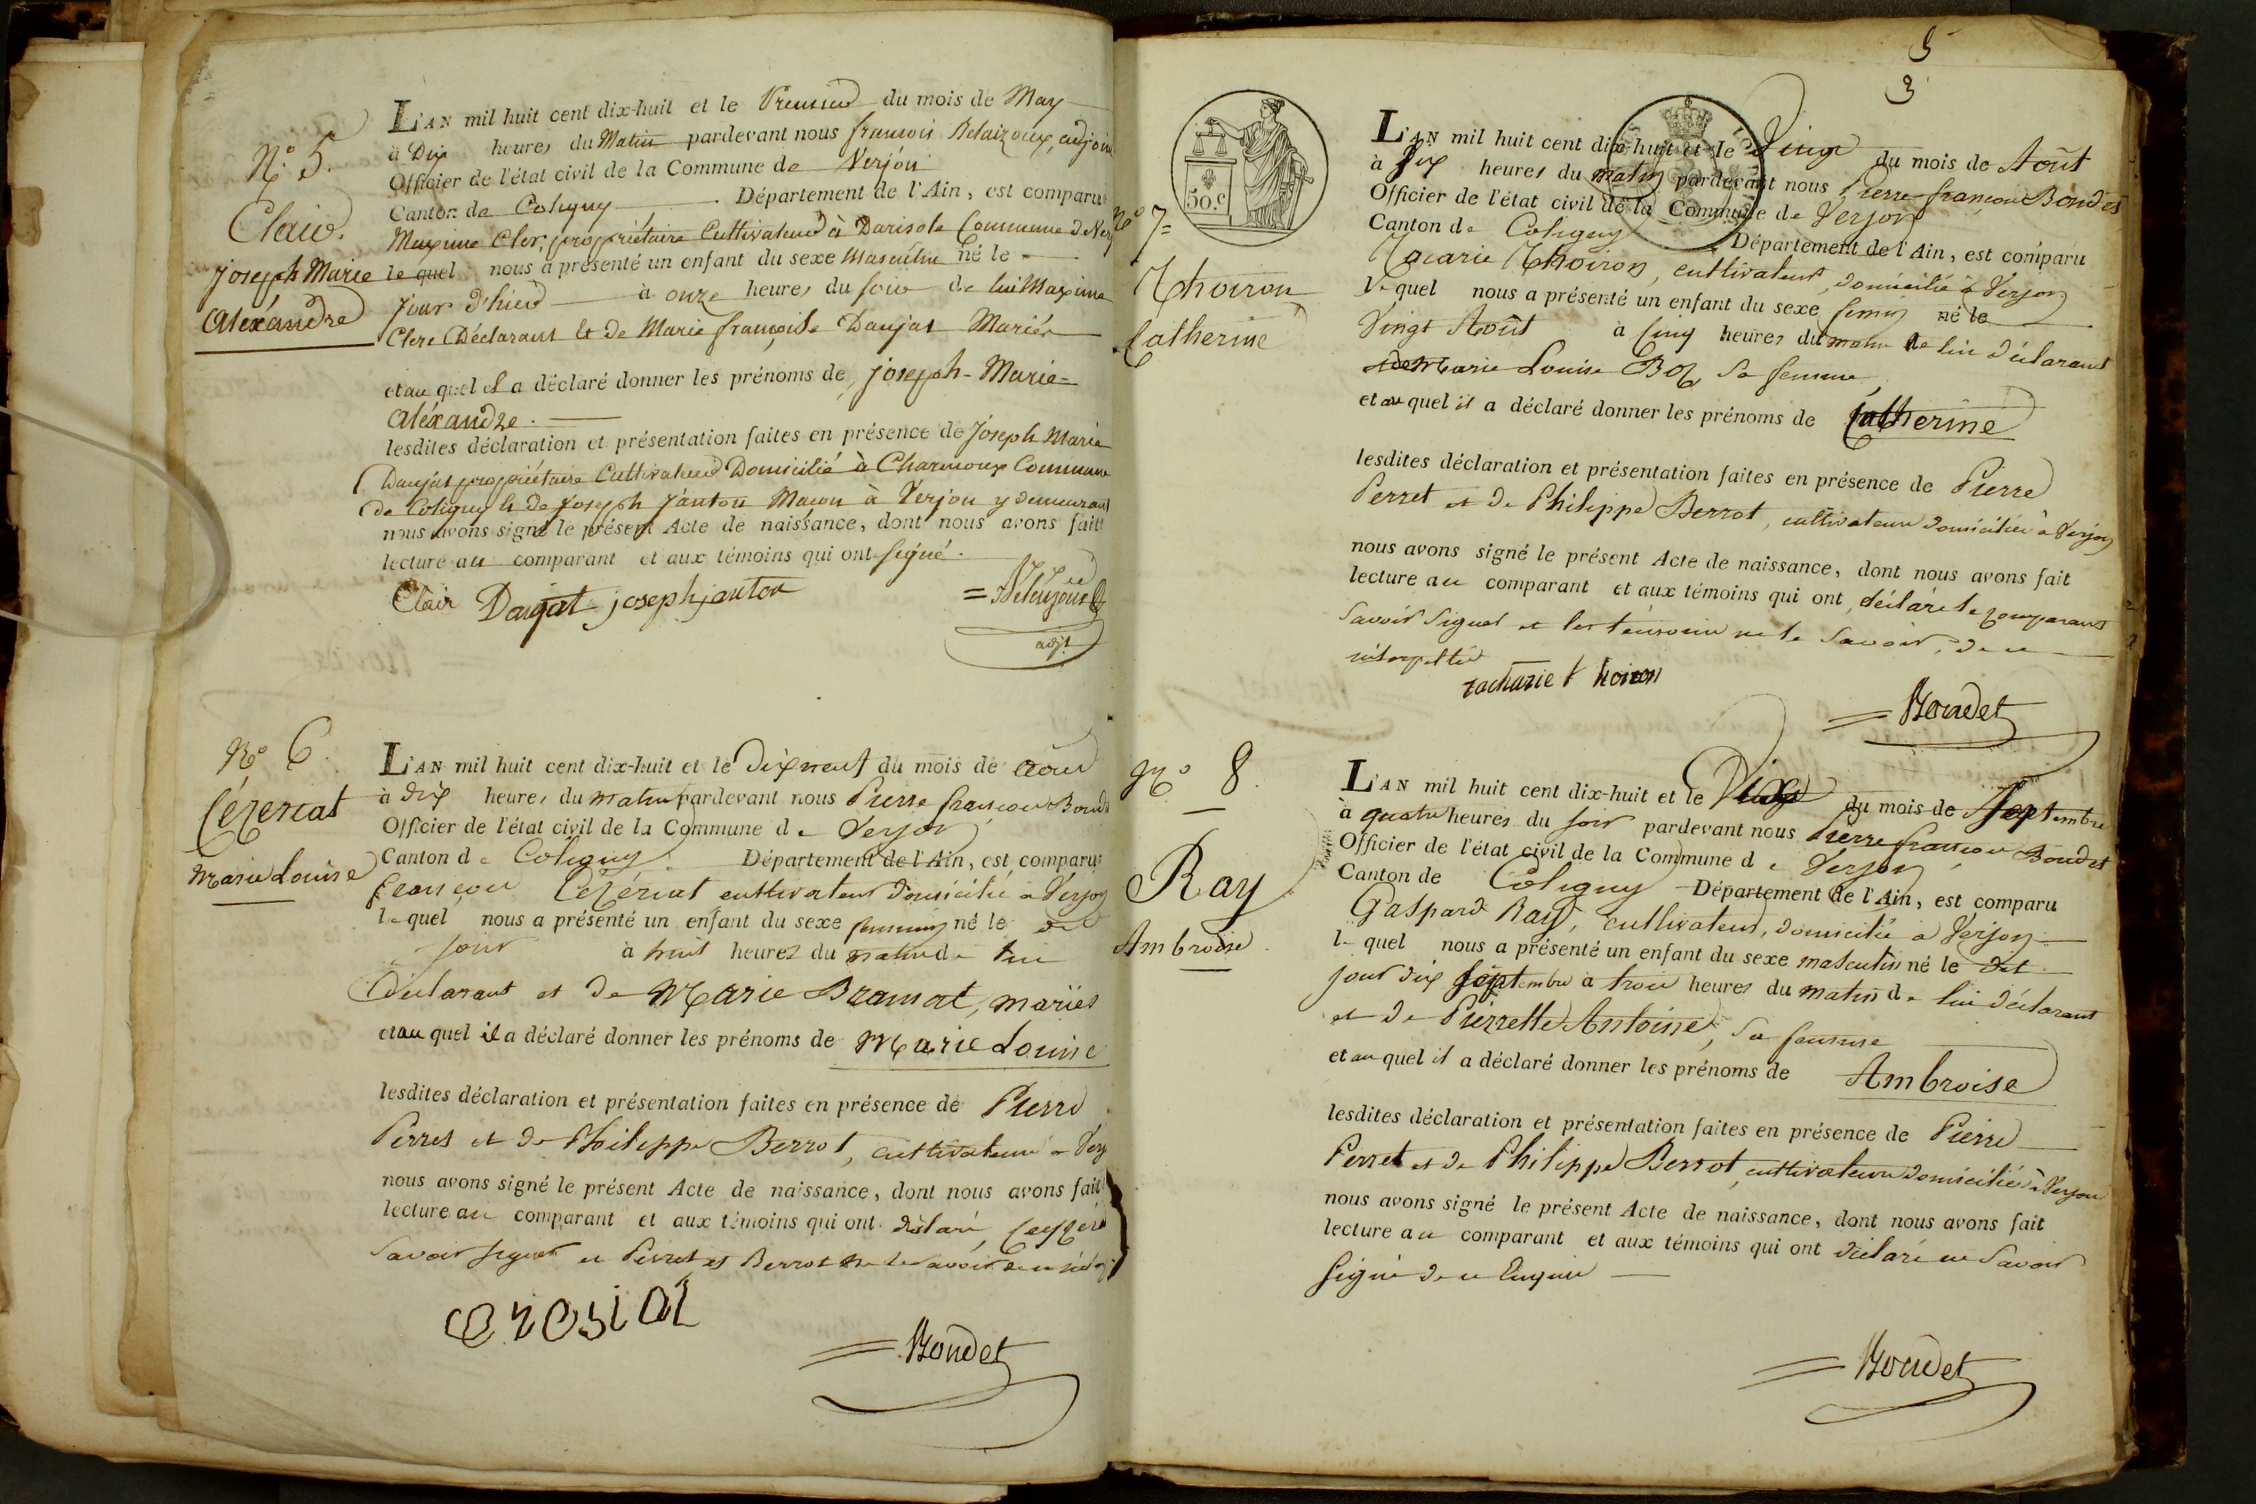 N.° 5.
Clair.
joseph Marie
Aléxandre
L'AN mil huit cent dix-huit et le Premier du mois de May
à Dix heures du Matin pardevant nous françois adjoint
Officier de l'état civil de la Commune de Verjon
Canton de Coligny Département de l'Ain, est comparu
Maxime Clerc, propriétaire Cultivateur à Commune de
le quel nous a présenté un enfant du sexe Masculin né le
jour d'hier à onze heures du soir de lui Maxime
Clerc Déclarant et de Marie françoise Daujat Mariés
et au quel il a déclaré donner les prénoms de joseph-Marie=
Aléxandre.
lesdites déclaration et présentation faites en présence de Joseph Marie
Daujat propriétaire Cultivateur Domicilié à Charmoux Commune
de Coligny & de Joseph janton Maçon à Verjon y demeurant
nous avons signé le présent Acte de naissance, dont nous avons fait
lecture au comparant et aux témoins qui ont signé.
Clair Daujat joseph janton
adjt
N° 6.
Cézeriat
Marie Louise
L'AN mil huit cent dix-huit et le Dix neuf du mois de août
à dix heures du matin pardevant nous Pierre françois Boudet
Officier de l'état civil de la Commune de Verjon
Canton de Coligny Département de l'Ain, est comparu
françois Cézériat cultivateur domicilié à Verjon
le quel nous a présenté un enfant du sexe feminin né le dit
jour à huit heures du matin de lui
déclarant et de Marie Bramat, mariés
et au quel il a déclaré donner les prénoms de Marie Louise
lesdites déclaration et présentation faites en présence de Pierre
Perret et de Philippe Berrot, cultivateurs à
nous avons signé le présent Acte de naissance, dont nous avons fait
lecture au comparant et aux témoins qui ont déclaré,
savoir signer et Perret et Berrot ne le savoir de ce
Boudet
5
3
50.c
N° 7=
Thoiron
Catherine
L'AN mil huit cent dix-huit et le Vingt du mois de Août
à Dix heures du matin pardevant nous Pierre françois Boudet
Officier de l'état civil de la Commune de Verjon
Canton de Coligny Département de l'Ain, est comparu
Zacarie Thoiron, cultivateur, domicilié à Verjon
le quel nous a présenté un enfant du sexe femin né le
Vingt Août à cinq heures du matin de lui déclarant
et de Marie Louise sa femme,
et au quel il a déclaré donner les prénoms de Catherine
lesdites déclaration et présentation faites en présence de Pierre
Perret et de Philippe Berrot, cultivateurs domiciliés à Verjon
nous avons signé le présent Acte de naissance, dont nous avons fait
lecture au comparant et aux témoins qui ont, déclaré le comparant
savoir signer et les témoins ne le savoir, de ce
interpellés
zacharie thoiron
Boudet
N° 8.
Ray
Ambroise
L'AN mil huit cent dix-huit et le Dix du mois de Septembre
à quatre heures du soir pardevant nous Pierre françois Boudet
Officier de l'état civil de la Commune de Verjon
Canton de Coligny Département de l'Ain, est comparu
Gaspard Ray, cultivateur, domicilié à Verjon
le quel nous a présenté un enfant du sexe masculin né le dit
jour dix septembre à trois heures du matin de lui déclarant
et de Pierrette Antoine, sa femme
et au quel il a déclaré donner les prénoms de Ambroise
lesdites déclaration et présentation faites en présence de Pierre
Perret et de Philippe Berrot, cultivateurs domiciliés à Verjon
nous avons signé le présent Acte de naissance, dont nous avons fait
lecture au comparant et aux témoins qui ont déclaré ne savoir
signer de ce Enquis
Boudet